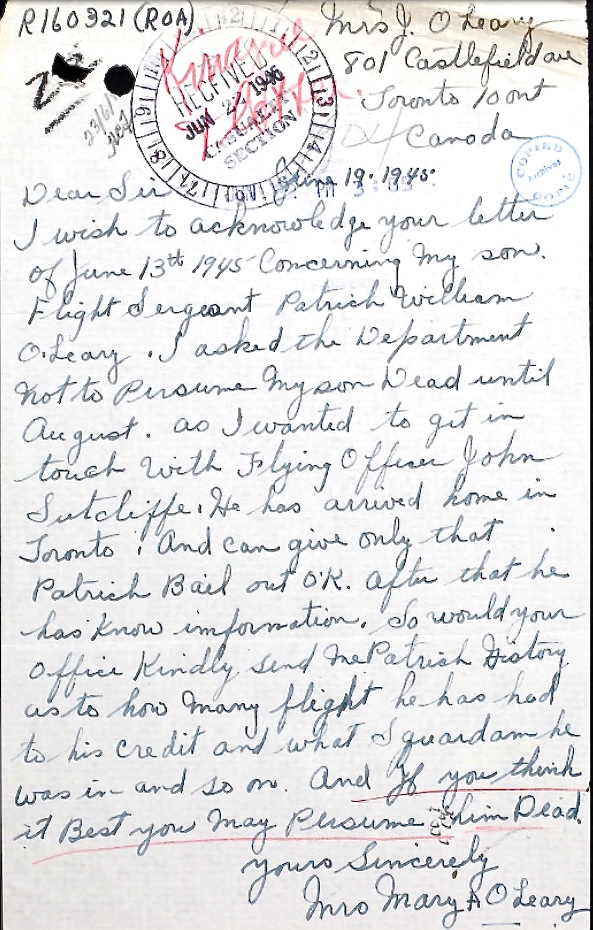 R160321 (ROA)
Mrs J. O'Leary
801 Castlefield ave
Toronto 10 ont
Canada
RECEIVED
JUN 23 1945
CASUALTY
SECTION
COPIED
Archives
COPIÉ
June 19. 1945
Dear Sir
I wish to acknowledge your letter
of June 13th 1945 Concerning My son.
Flight Sergeant Patrick William
O.Leary. I asked the Department
Not to Persume My son Dead until
August. as I wanted to get in
touch With Flying Officer John
Sutcliffe. He has arrived home in
Toronto. And can give only that
Patrick Bail out O'K. after that he
has know imformation. So would your
Office Kindly send Me Patrick History
as to how Many flight he has had
to his credit and what Squardam he
was in and so on. And If you think
it Best you May Persume him Dead.
yours Sincerely
Mrs Mary A O'Leary